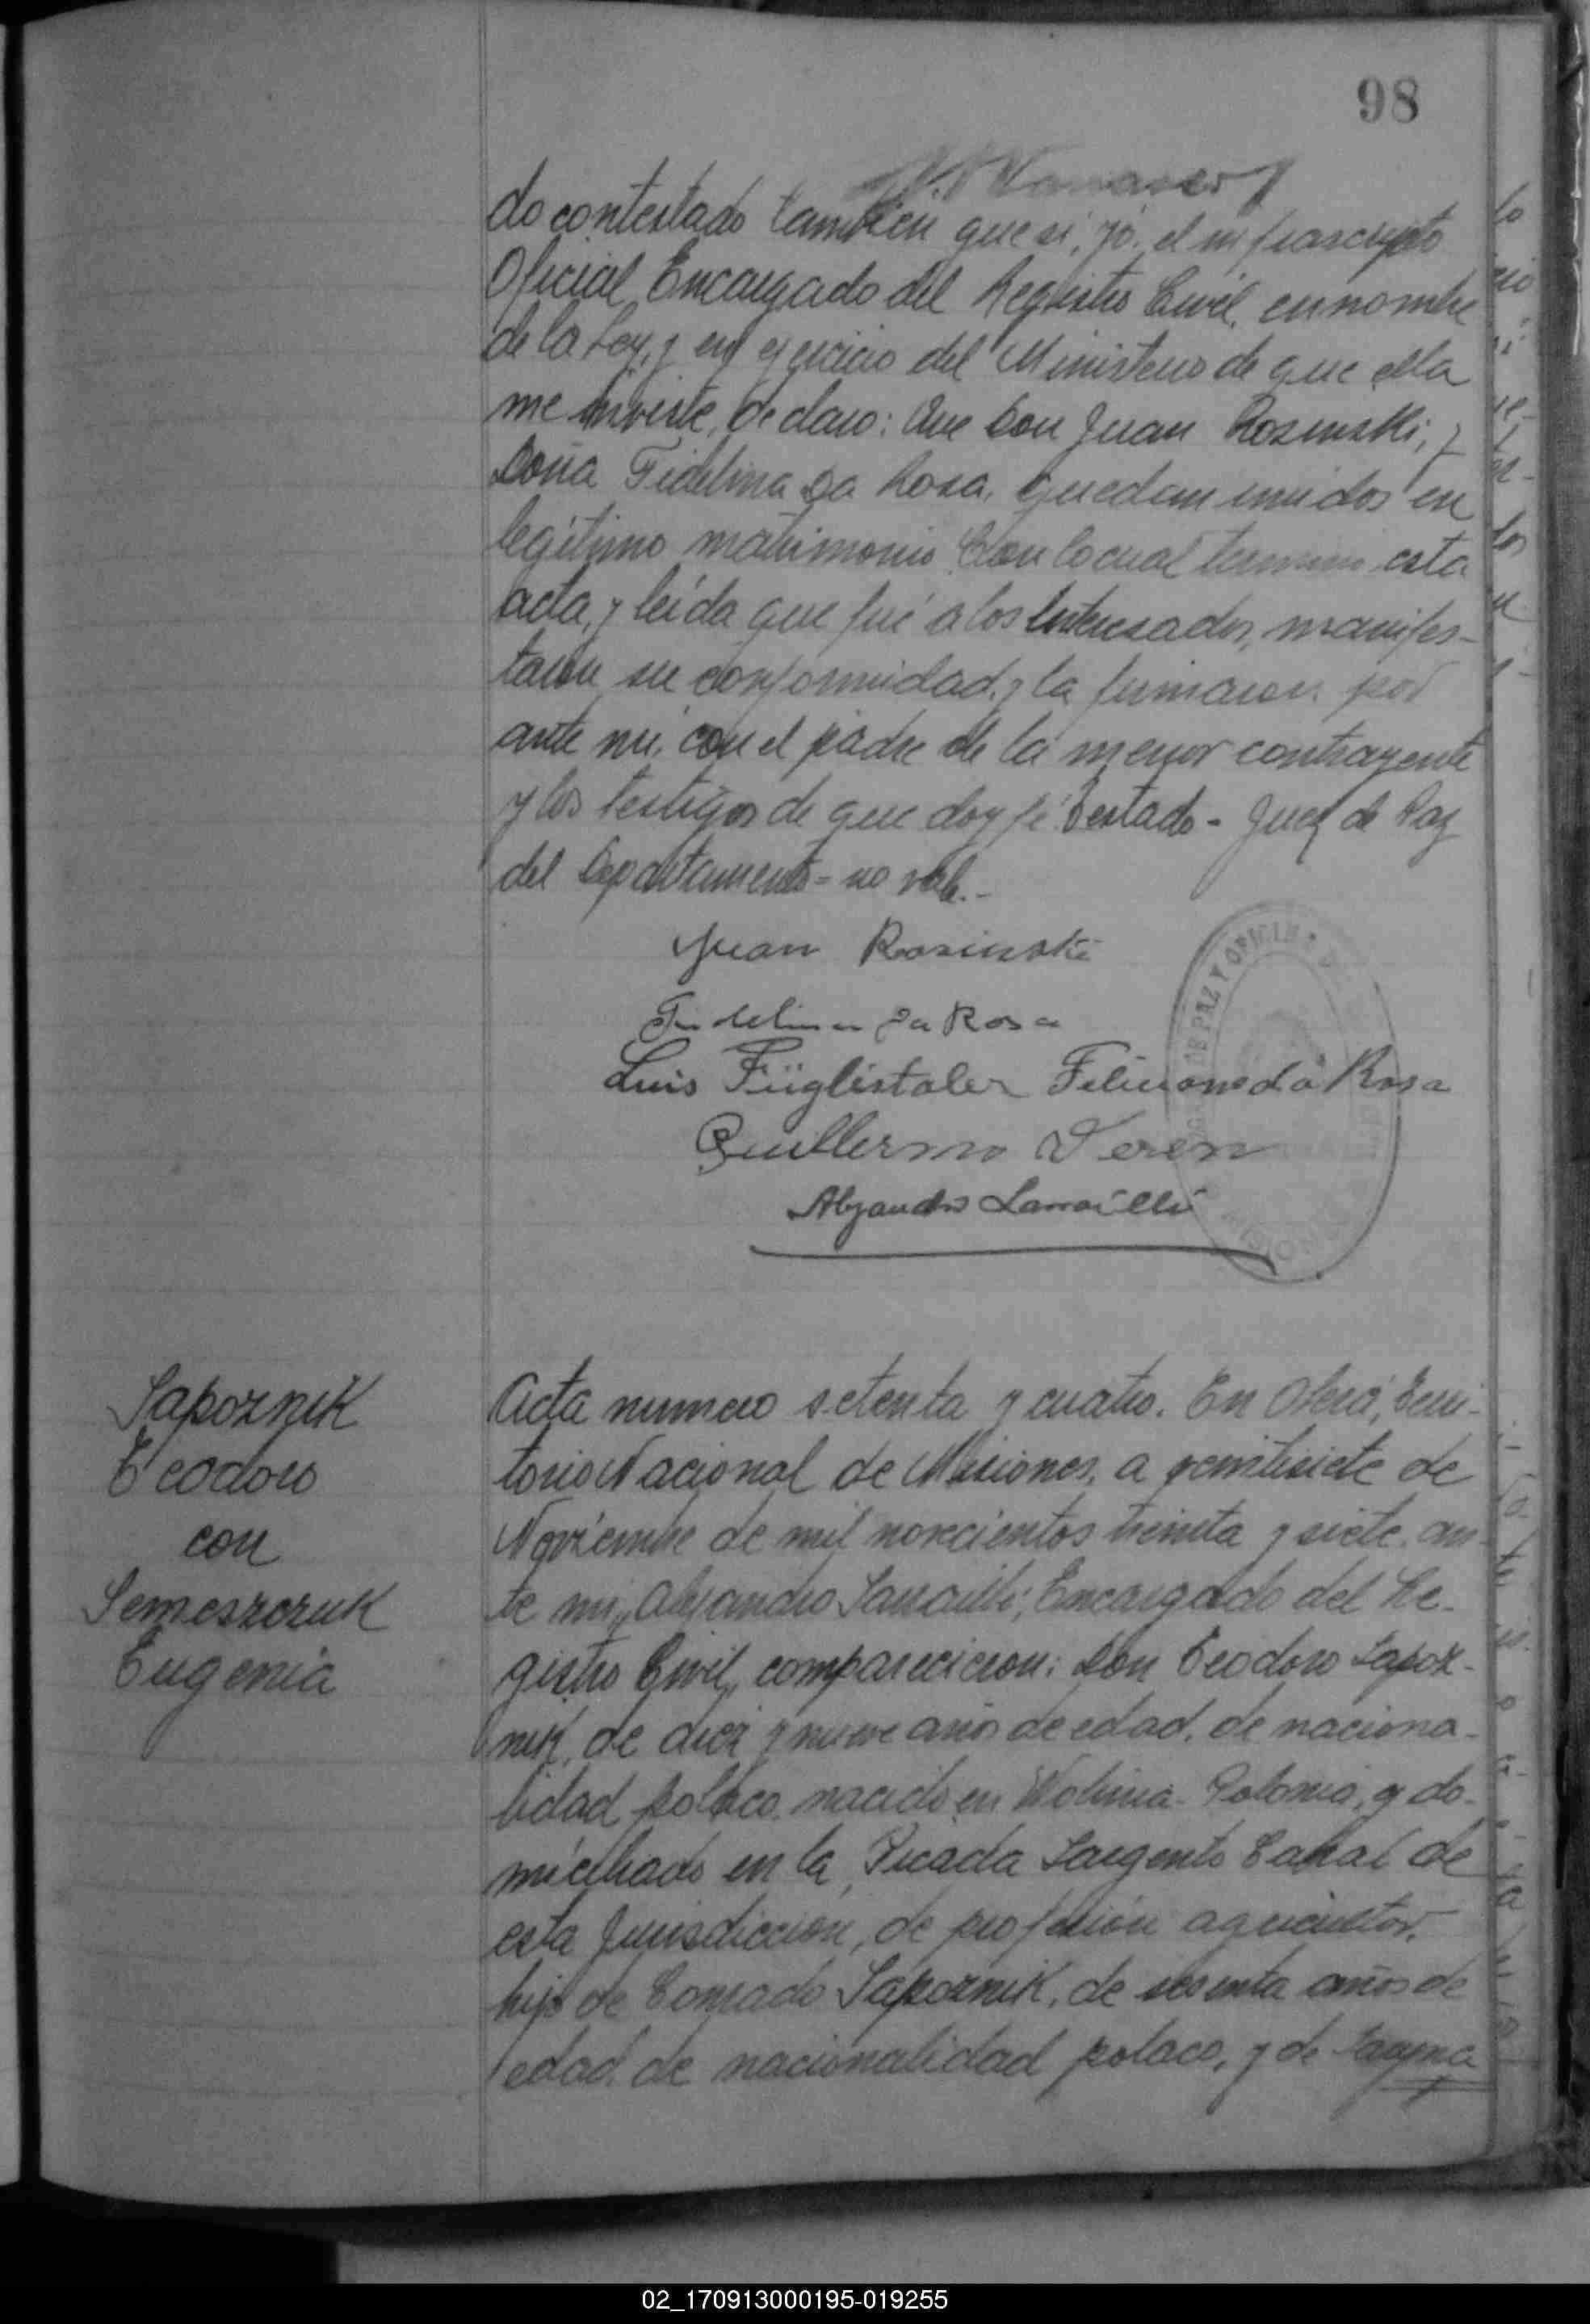 98
do contestado también que si, yo, el infrascripto
Oficial Encargado del Registro Civil, en nombre
de la Ley, y en ejercicio del Ministerio de que ella
me inviste, declaro: Que Don Juan Rosinski, y
Doña Fidelina Da Rosa, quedan unidos en
legítimo matrimonio. Con lo cual termino esta
acta, y leída que fué a los interesados, manifes-
taron su conformidad, y la firmaron por
ante mi, con el padre de la menor contrayente
y los testigos de que doy fé. Testado - Juez de Paz
del Departamento = no vale.-
Juan Rosinski
Fidelina Da Rosa
Luis Füglistaler Feliciano da Rosa
Guillermo
Alejandro
DE PAZ Y OFICINA
MISIONES
Sapoznik
Teodoro
con
Semeszczuk
Eugenia
Acta numero setenta y cuatro. En Oberá, Terri-
torio Nacional de Misiones, a veintisiete de
Noviembre de mil novecientos treinta y siete, an-
te mi, Alejandro Encargado del Re-
gistro Civil, comparecieron: Don Teodoro Sapoz-
nik, de diez y nueve años de edad, de naciona-
lidad polaco, nacido en Wolinia - Polonia, y do-
miciliado en la Picada Sargento Cabral de
esta Jurisdicción, de profesión agricultor,
hijo de Conrado Sapoznik, de sesenta años de
edad, de nacionalidad polaco, y de
02_170913000195-019255